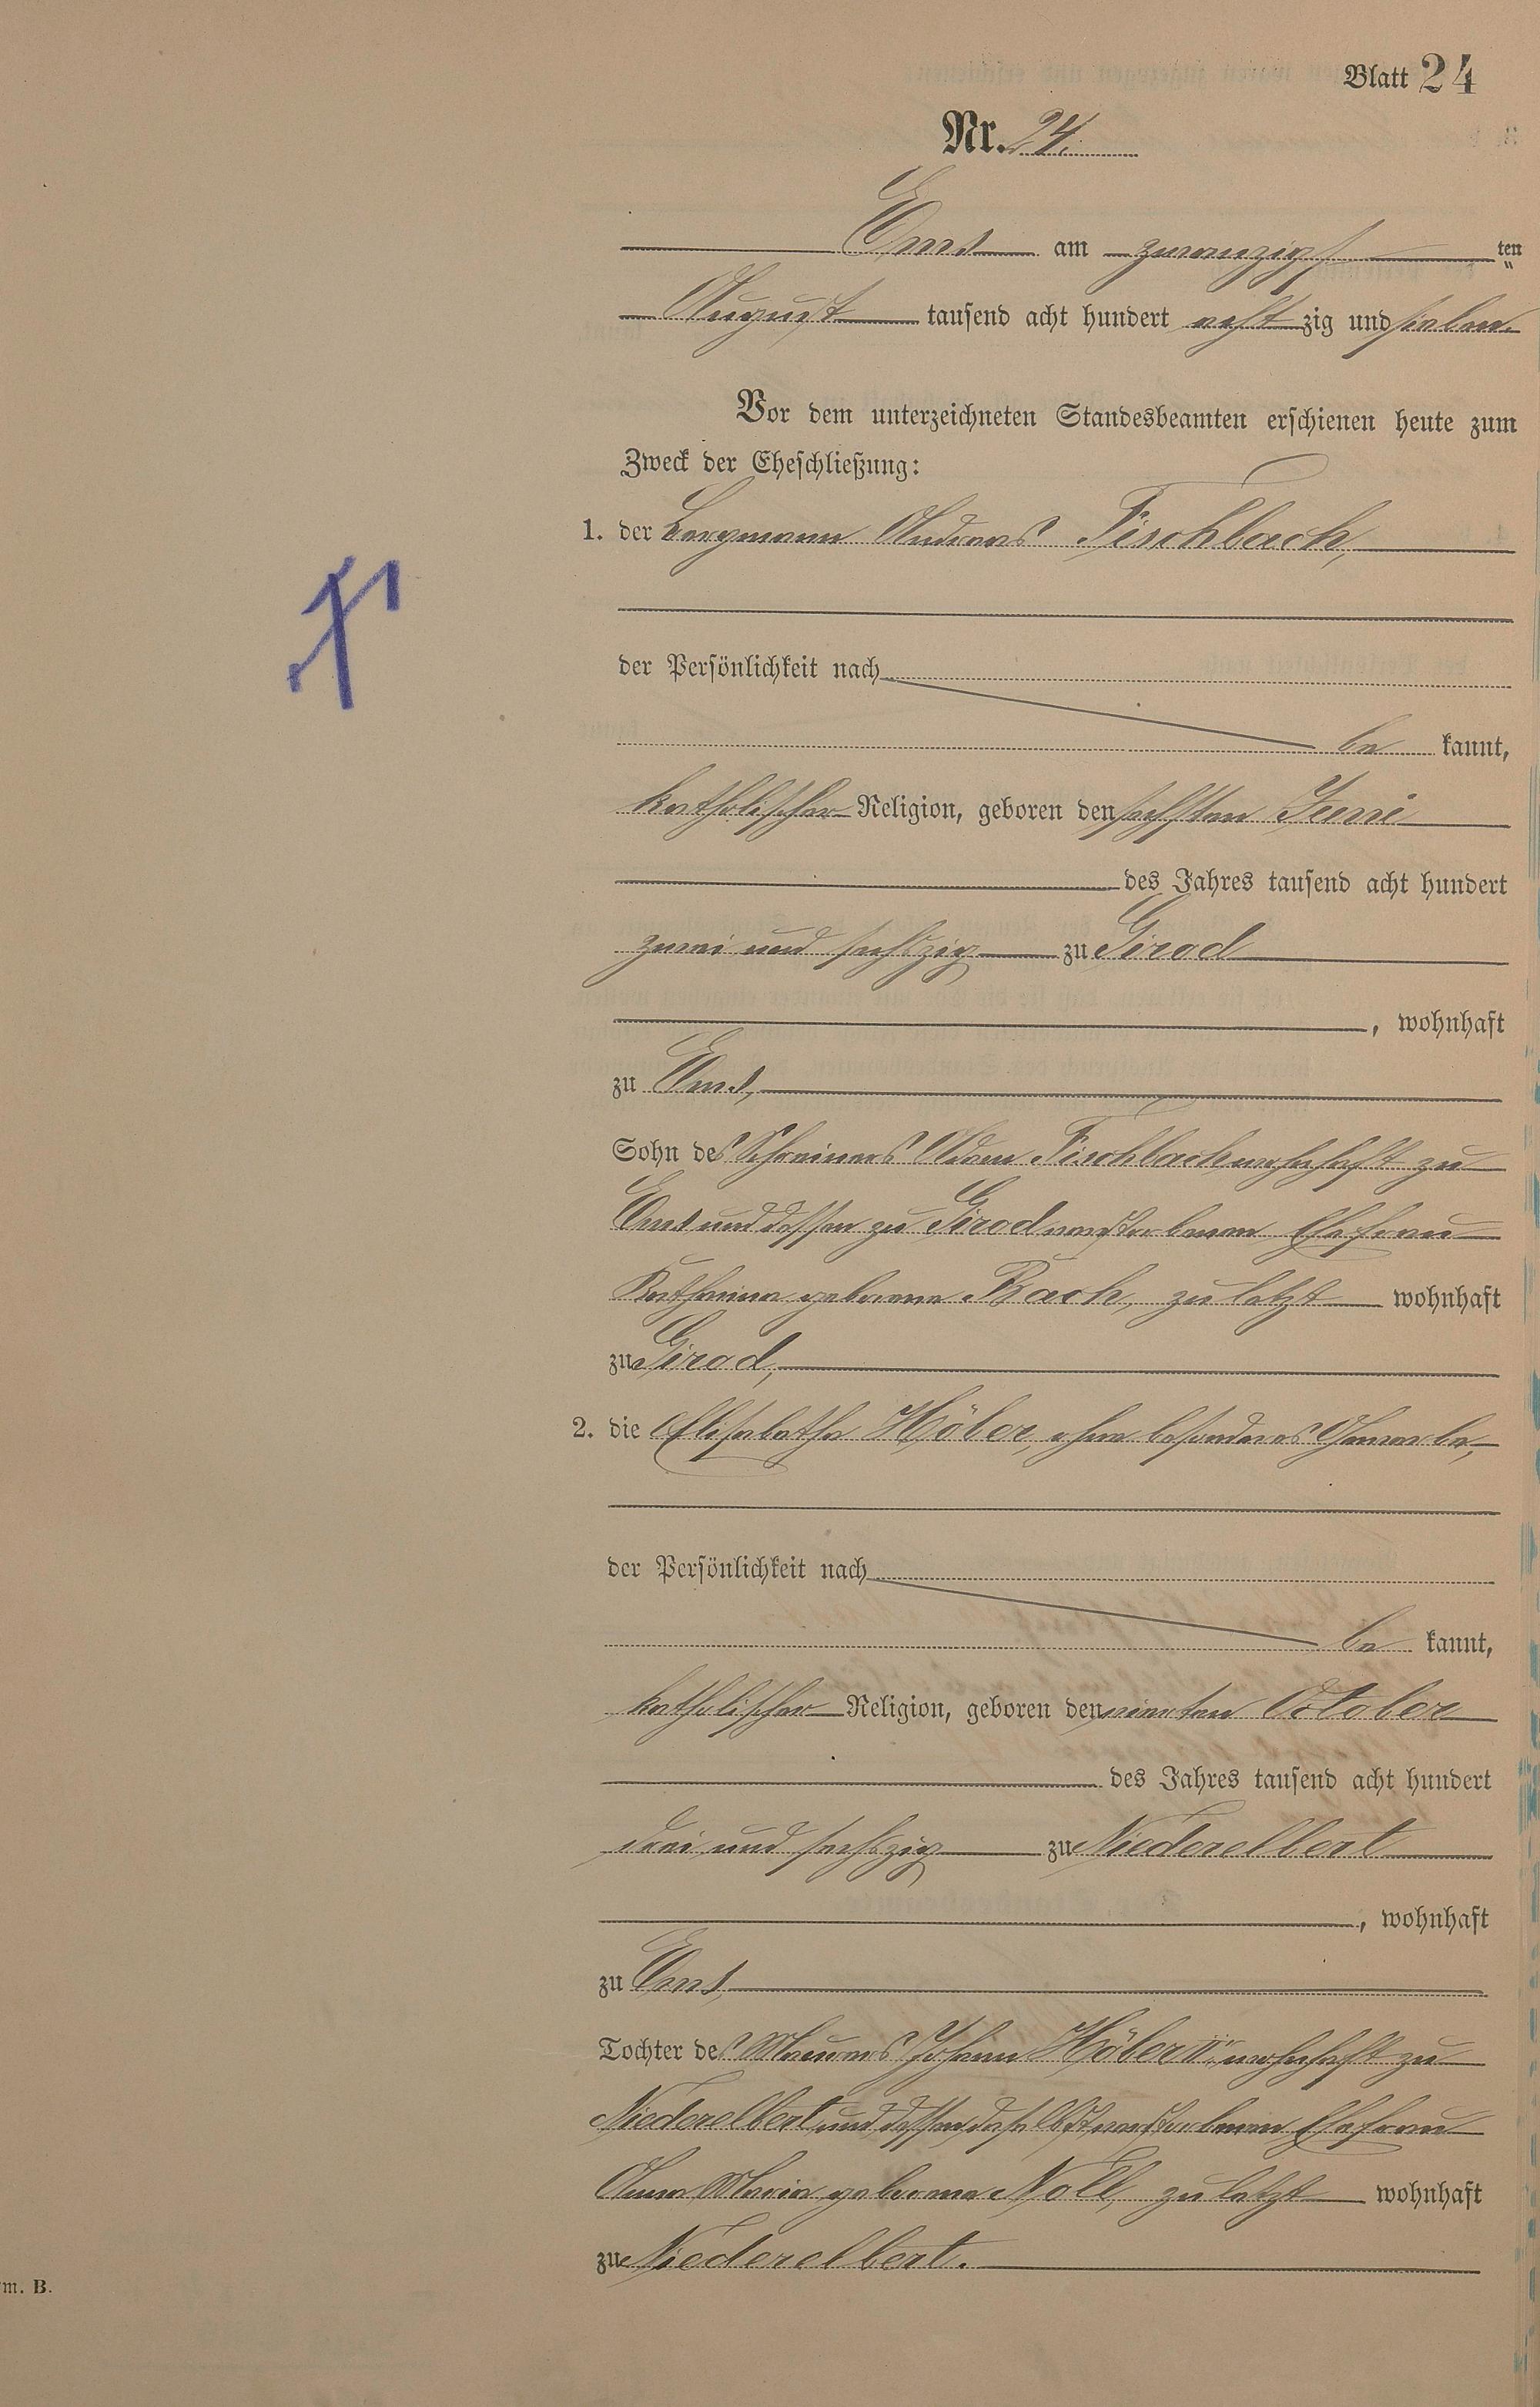 Blatt 24
Nr. 24.
Ems am zwanzigsten
August tausend acht hundert achtzig und sieben.
Vor dem unterzeichneten Standesbeamten erschienen heute zum
Zweck der Eheschließung:
1. der Bergmann Andreas Fischbach,
der Persönlichkeit nach
be kannt,
katholischer Religion, geboren den sechsten Juni
des Jahres tausend acht hundert
zwei und sechszig zu Girod
, wohnhaft
zu Ems,
Sohn des Schreiners Adam Fischbach wohnhaft zu
Ems und dessen zu Girod verstorbenen Ehefrau
Katharina geborene Bach, zuletzt wohnhaft
zu Girod,
2. die Elisabetha Höber, ohne besonderes Gewerbe,
der Persönlichkeit nach
be kannt,
katholischer Religion, geboren den neunten October
des Jahres tausend acht hundert
drei und sechszig zu Niederelbert
, wohnhaft
zu Ems,
Tochter des Maurers Johann Höber II. wohnhaft zu
Niederelbert und dessen daselbst verstorbenen Ehefrau
Anna Maria geborene Noll, zuletzt wohnhaft
zu Niederelbert.
m. B.